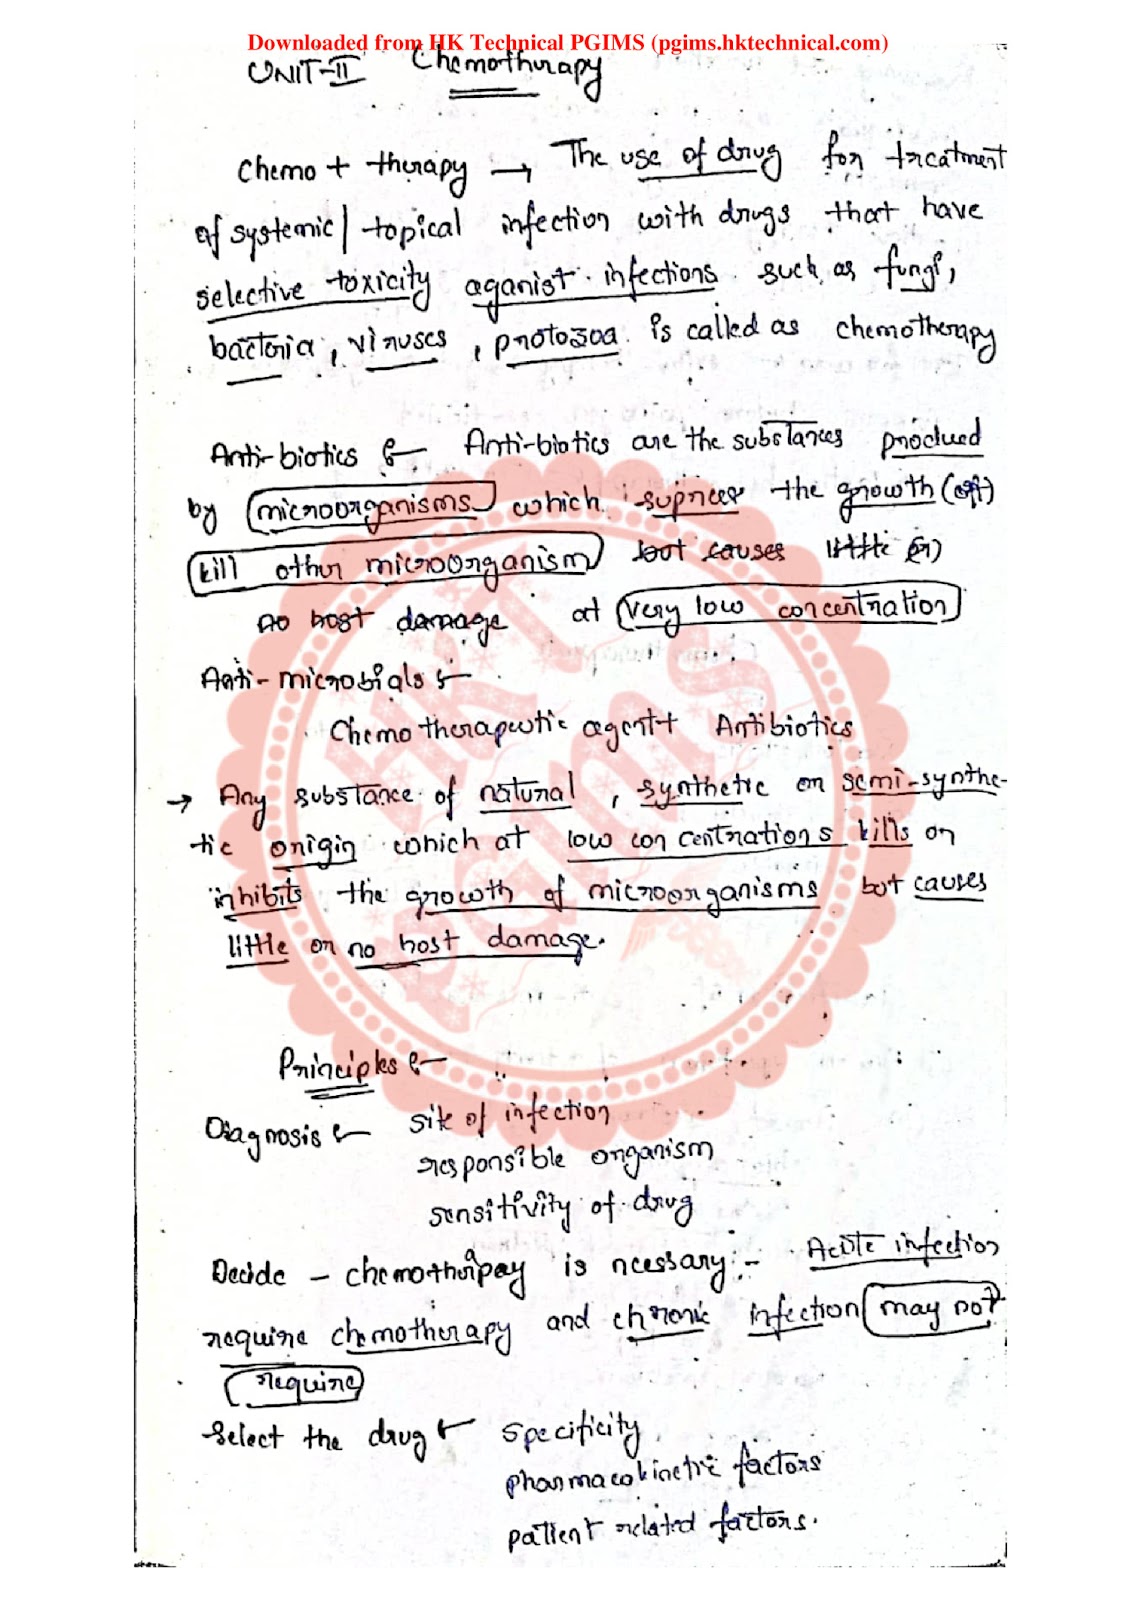 Downloaded from HK Technical PGIMS (pgims.hktechnical.com)
UNIT-II Chemotherapy
Chemo + therapy → The use of drug for treatment
of systemic/ topical infection with drugs that have
selective toxicity aganist infections such as fungi,
bacteria, viruses, protozoa is called as chemotherapy
Anti-biotics :- Anti-biotics are the substances produed
by microorganisms which supress the growth (or)
kill other microorganism but causes little (or)
no host damage at very low concentration
Anti-microbials :-
Chemotherapeutic agent + Antibiotics
→ Any substance of natural, synthetic or semi-synthe-
tic origin which at low concentrations kills or
inhibits the growth of microorganisms but causes
little or no host damage.
HKT
PGIMS
Principles :-
Diagnosis :- site of infection
responsible organism
sensitivity of drug
Decide - chemotherapay is nessary :- Acute infection
require chemotherapy and chronic infection may not
require
Select the drug :- specificity
pharmacokinetic factors
patient related factors.